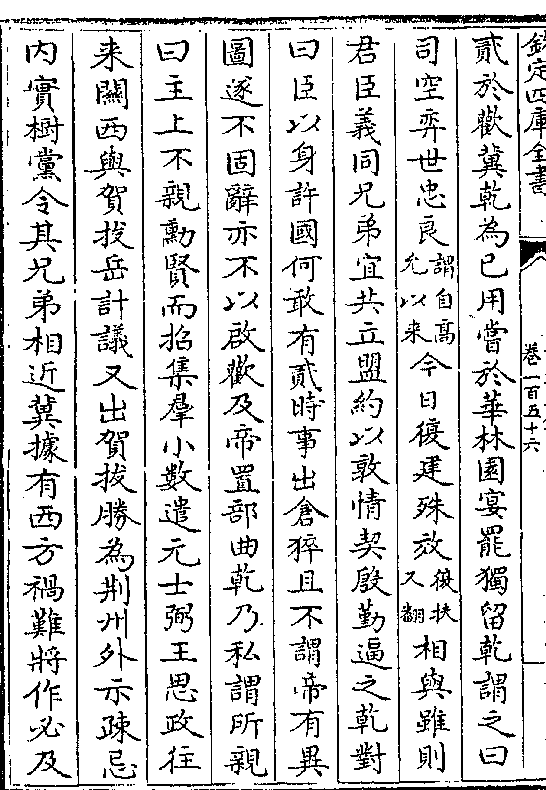 欽定四庫全書
卷一百五十六
貳於歡冀乾為已用嘗於華林園宴罷獨留乾謂之曰
司空弈世忠良謂自高允以来今日復建殊效復扶又翻相與雖則
君臣義同兄弟宜共立盟約以敦情契殷勤逼之乾對
曰臣以身許國何敢有貳時事出倉猝且不謂帝有異
圖遂不固辭亦不以啟歡及帝置部曲乾乃私謂所親
曰主上不親勳賢而招集羣小數遣元士弼王思政往
来關西與賀拔岳計議又出賀拔勝為荆州外示疎忌
内實樹黨令其兄弟相近冀據有西方禍難將作必及